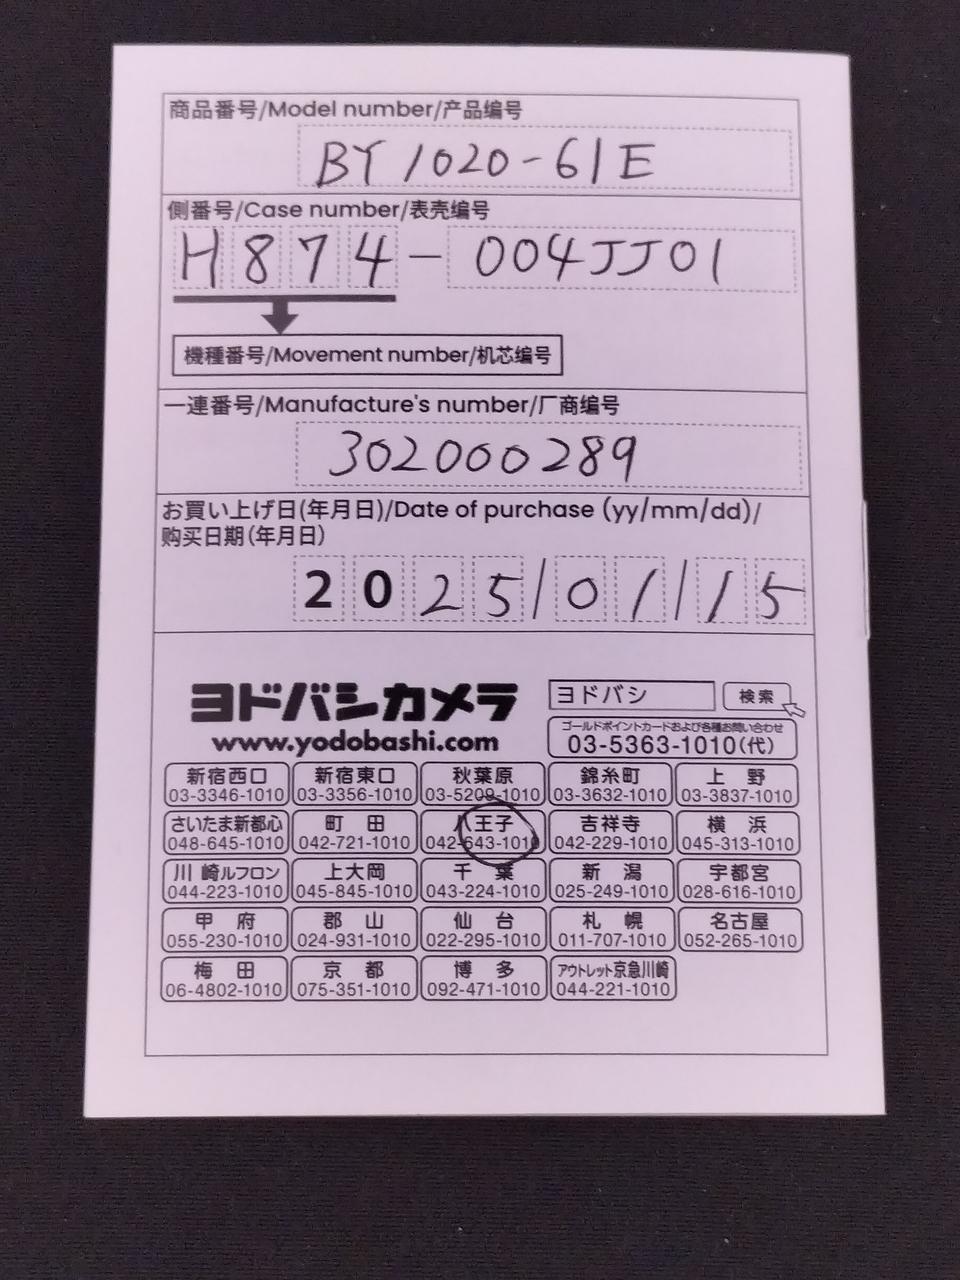 商品番号/Model number/产品编号
BY1020-61E
側番号/Case number/表壳编号
H874-004JJ01
機種番号/Movement number/机芯编号
一連番号/Manufacture's number/厂商编号
302000289
お買い上げ日(年月日)/Date of purchase (yy/mm/dd)/
购买日期(年月日)
2025/01/15
ヨドバシカメラ
www.yodobashi.com
ヨドバシ 検索
ゴールドポイントカードおよび各種お問い合わせ
03-5363-1010(代)
新宿西口 新宿東口 秋葉原 錦糸町 上 野
03-3346-1010 03-3356-1010 03-5209-1010 03-3632-1010 03-3837-1010
さいたま新都心 町 田 八王子 吉祥寺 横 浜
048-645-1010 042-721-1010 042-643-1010 042-229-1010 045-313-1010
川 崎ルフロン 上大岡 千 葉 新 潟 宇都宮
044-223-1010 045-845-1010 043-224-1010 025-249-1010 028-616-1010
甲 府 郡 山 仙 台 札 幌 名古屋
055-230-1010 024-931-1010 022-295-1010 011-707-1010 052-265-1010
梅 田 京 都 博 多 アウトレット京急川崎
06-4802-1010 075-351-1010 092-471-1010 044-221-1010